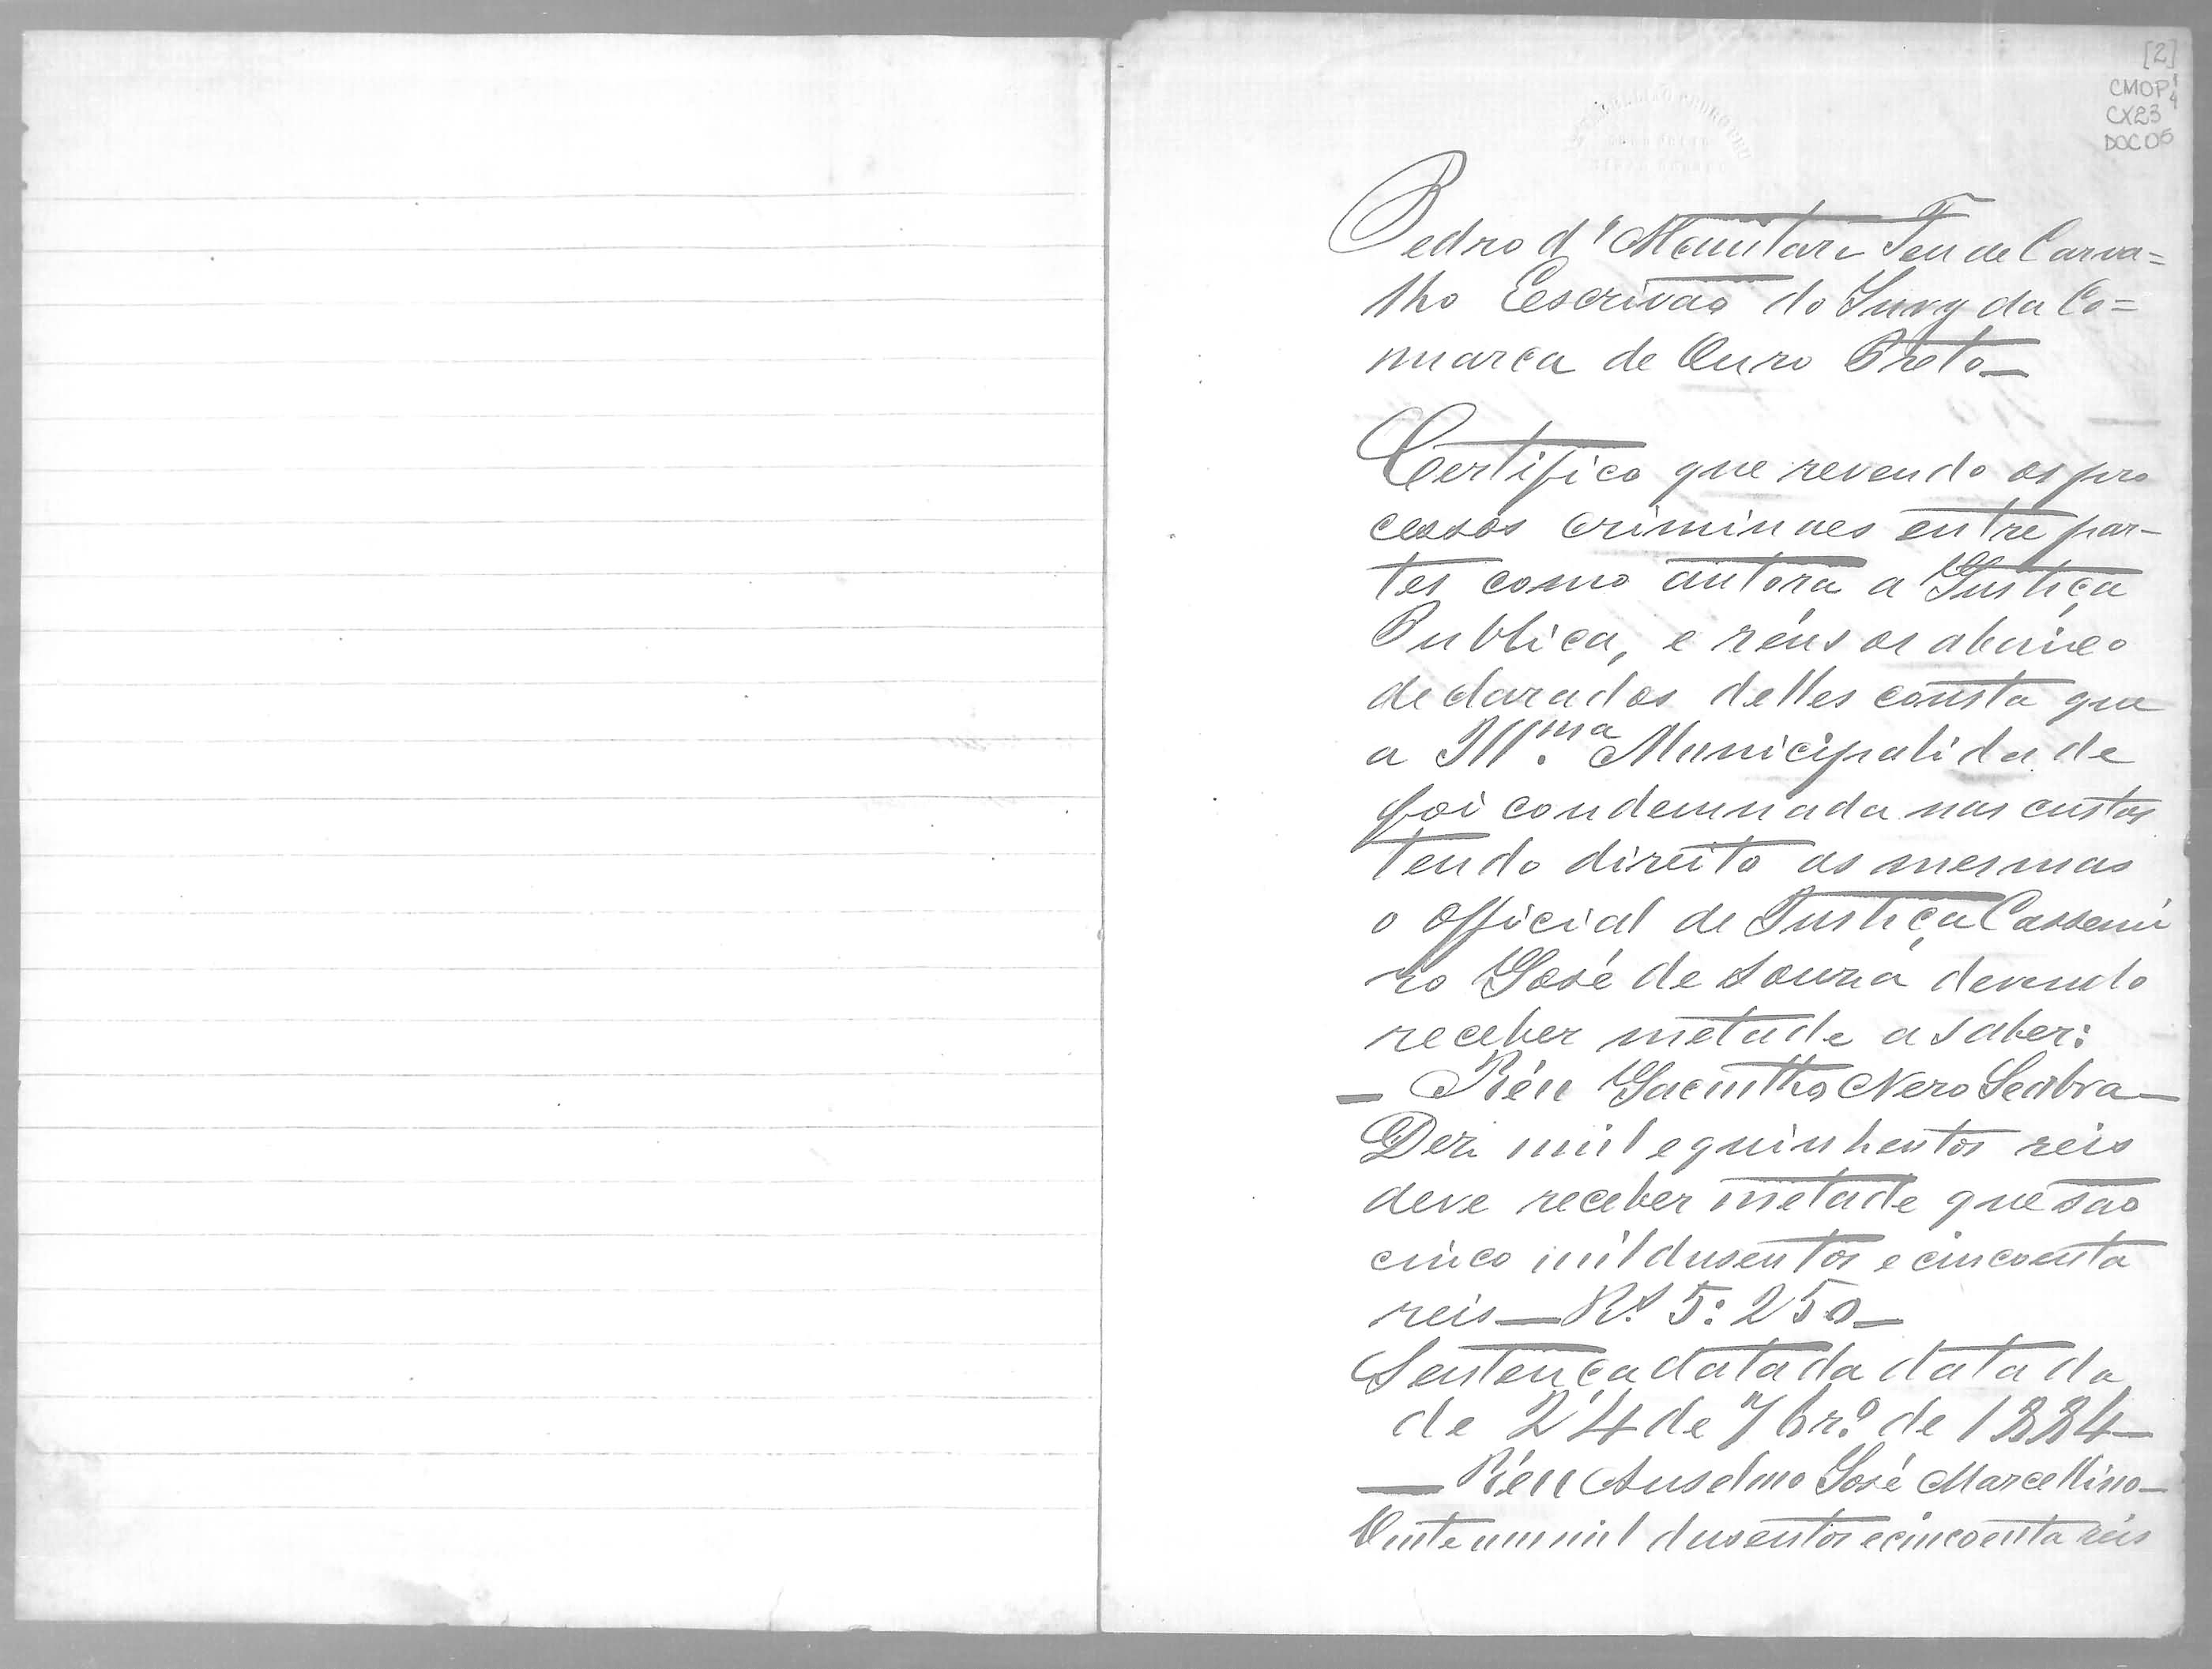 [2]
CMOP
CX23
DOC 05
Pedro d' de Carva=
lho Escrivão do Jury da Co=
marca de Ouro Preto—
Certifico que revendo os pro
cessos criminaes entre par-
tes como autora a Justiça
Publica, e réus os abaixo
declarados delles consta que
a Ill.ma Municipalidade
foi condemnada nas custas
tendo direito as mesmas
o official de Justiça Cassemi
ro José de Souza devendo
receber metade a saber:
— Réu Jacintho Nero Seabra—
Dez mil e quinhentos reis
deve receber metade que são
cinco mil dusentos e cincoenta
reis — Rs. 5:250—
Sentença datada datada
de 24 de 7br.o de 1884—
— Réu Anselmo José Marcellino—
Vinte um mil dusentos e cincoenta reis